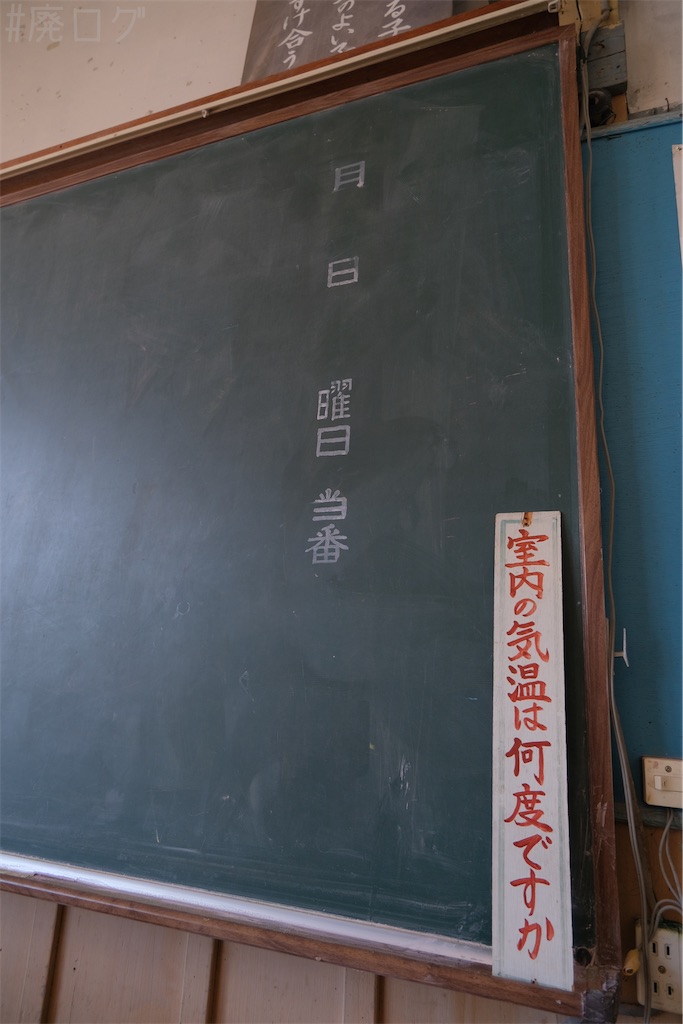 #廃ログ
る子
のよいて
すけ合う
月 日 曜日 当番
室内の気温は何度ですか